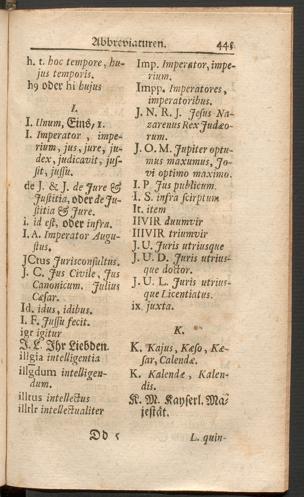 Abbreviaturen. 445
h. t. hoc tempore, hu-
jus temporis.
h9 oder hi hujus
I.
I. Unum, Eins, 1.
I. Imperator, impe-
rium, jus, jure, ju-
dex, judicavit, jus-
sit, jussu.
de J. & J. de Jure &
Justitia, oder de Ju-
stitia & Jure.
i. id est, oder infra.
I. A. Imperator Augu-
stus.
JCtus Jurisconsultus.
J. C. Jus Civile, Jus
Canonicum. Julius
Cæsar.
Id. idus, idibus.
I. F. Jussu fecit.
igr igitur
J. L. Ihr Liebden.
illgia intelligentia
illgdum intelligen-
dum.
illtus intellectus
illtlr intellectualiter
Imp. Imperator, impe-
rium.
Impp. Imperatores,
imperatoribus.
J. N. R. J. Jesus Na-
zarenus Rex Judæo-
rum.
J. O. M. Jupiter optu-
mus maxumus, Jo-
vi optimo maximo.
I. P Jus publicum.
I. S. infra scriptum
It. item
IIVIR duumvir
IIIVIR triumvir
J. U. Juris utriusque
J. U. D. Juris utrius-
que doctor.
J. U. L. Juris utrius-
que Licentiatus.
ix. juxta.
K.
K. Kajus, Kæso, Kæ-
sar, Calendæ.
K. Kalendæ, Kalen-
dis.
K. M. Kayserl. Ma-
jestät.
Dd 5 L. quin-